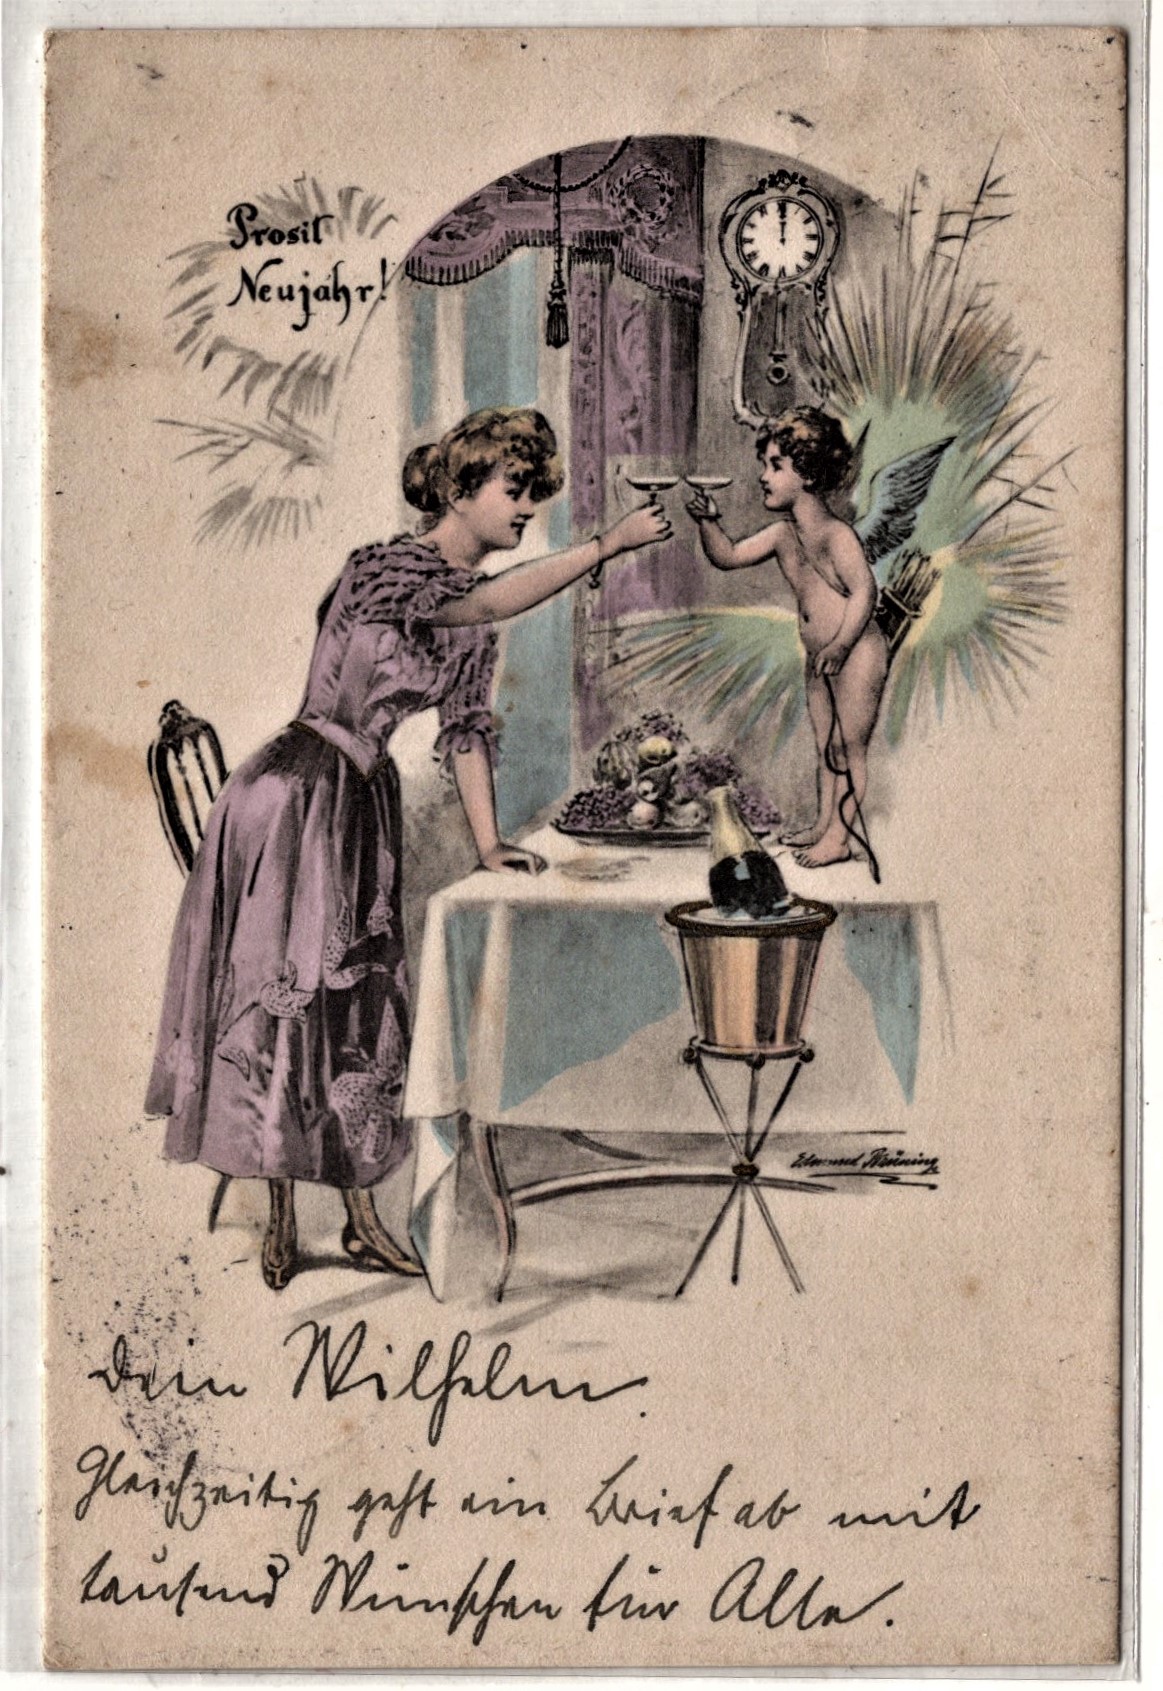 Prosit
Neujahr!
Edmund Brüning
Dein Wilhelm.
Gleichzeitig geht ein Brief ab mit
tausend Wünschen für Alle.